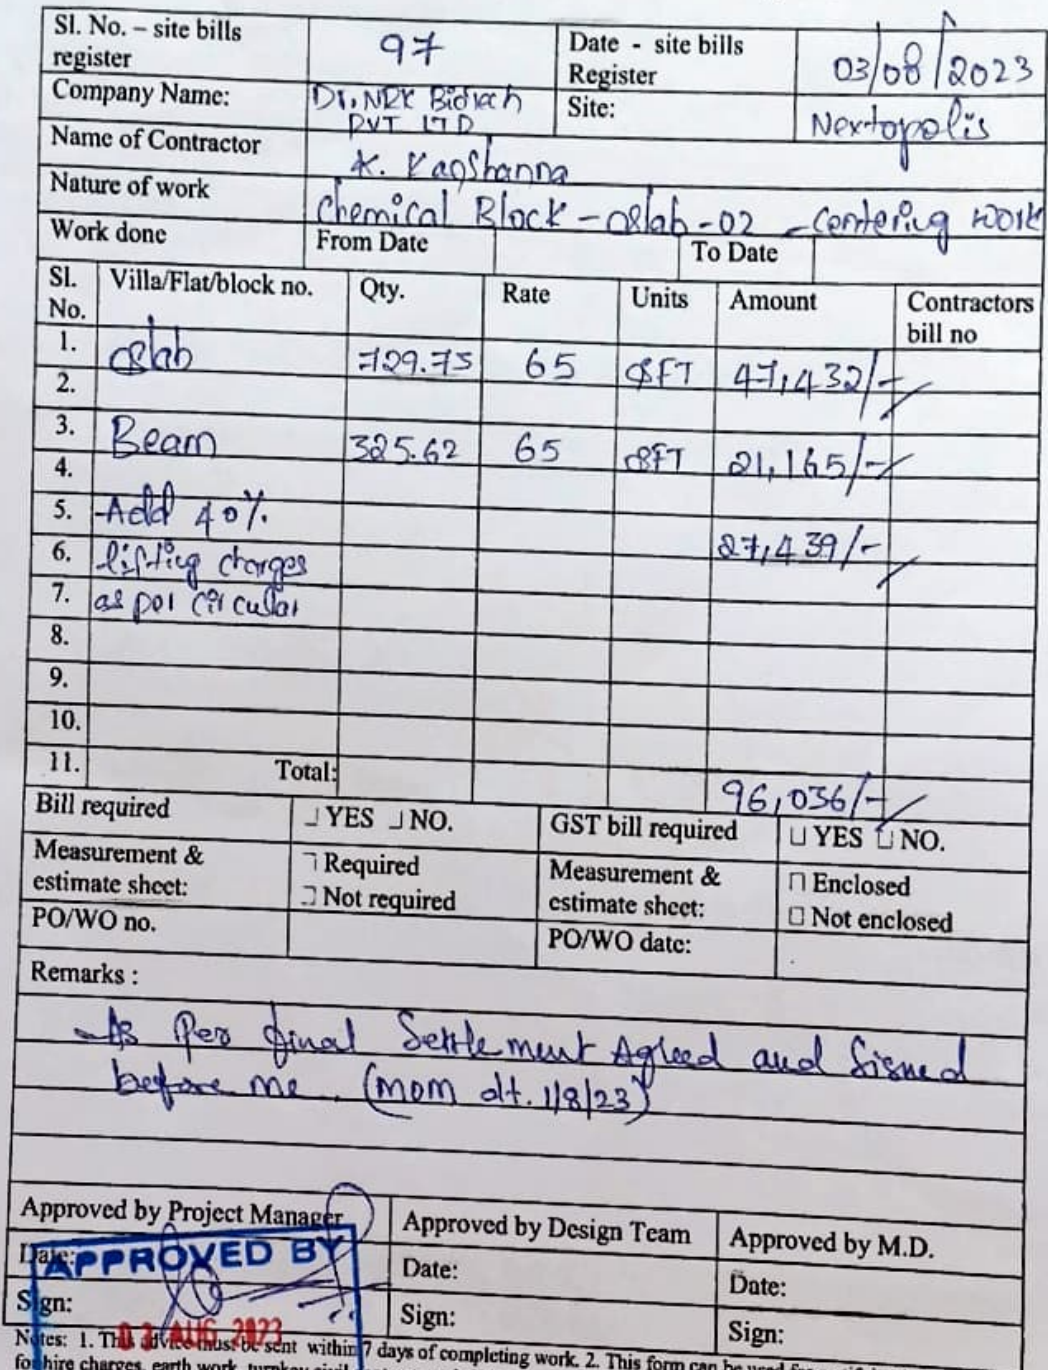 Sl. No. – site bills register 97 Date - site bills Register 03/08/2023
Company Name: Dr. NRK Biotech PVT LTD Site: Nextopolis
Name of Contractor K.
Nature of work Chemical Block - slab-02 - centering work
Work done From Date To Date
Sl. No. Villa/Flat/block no. Qty. Rate Units Amount Contractors bill no
1. slab 729.75 65 SFT 47,432/-
2.
3. Beam 325.62 65 SFT 21,165/-
4.
5. Add 40% 27,439/-
6. lifting charges
7. as per circular
8.
9.
10.
11. Total: 96,036/-
Bill required YES NO. GST bill required YES NO.
Measurement & estimate sheet: Required Not required Measurement & estimate sheet: Enclosed Not enclosed
PO/WO no. PO/WO date:
Remarks :
As Per final Settlement Agreed and Signed
before me. (mom dt. 1/8/23)
Approved by Project Manager Approved by Design Team Approved by M.D.
Date: Date: Date:
APPROVED BY
Sign: Sign: Sign:
03 AUG 2023
Notes: 1. This advice must be sent within 7 days of completing work. 2. This form can be used for
for hire charges, earth work, turnkey civil